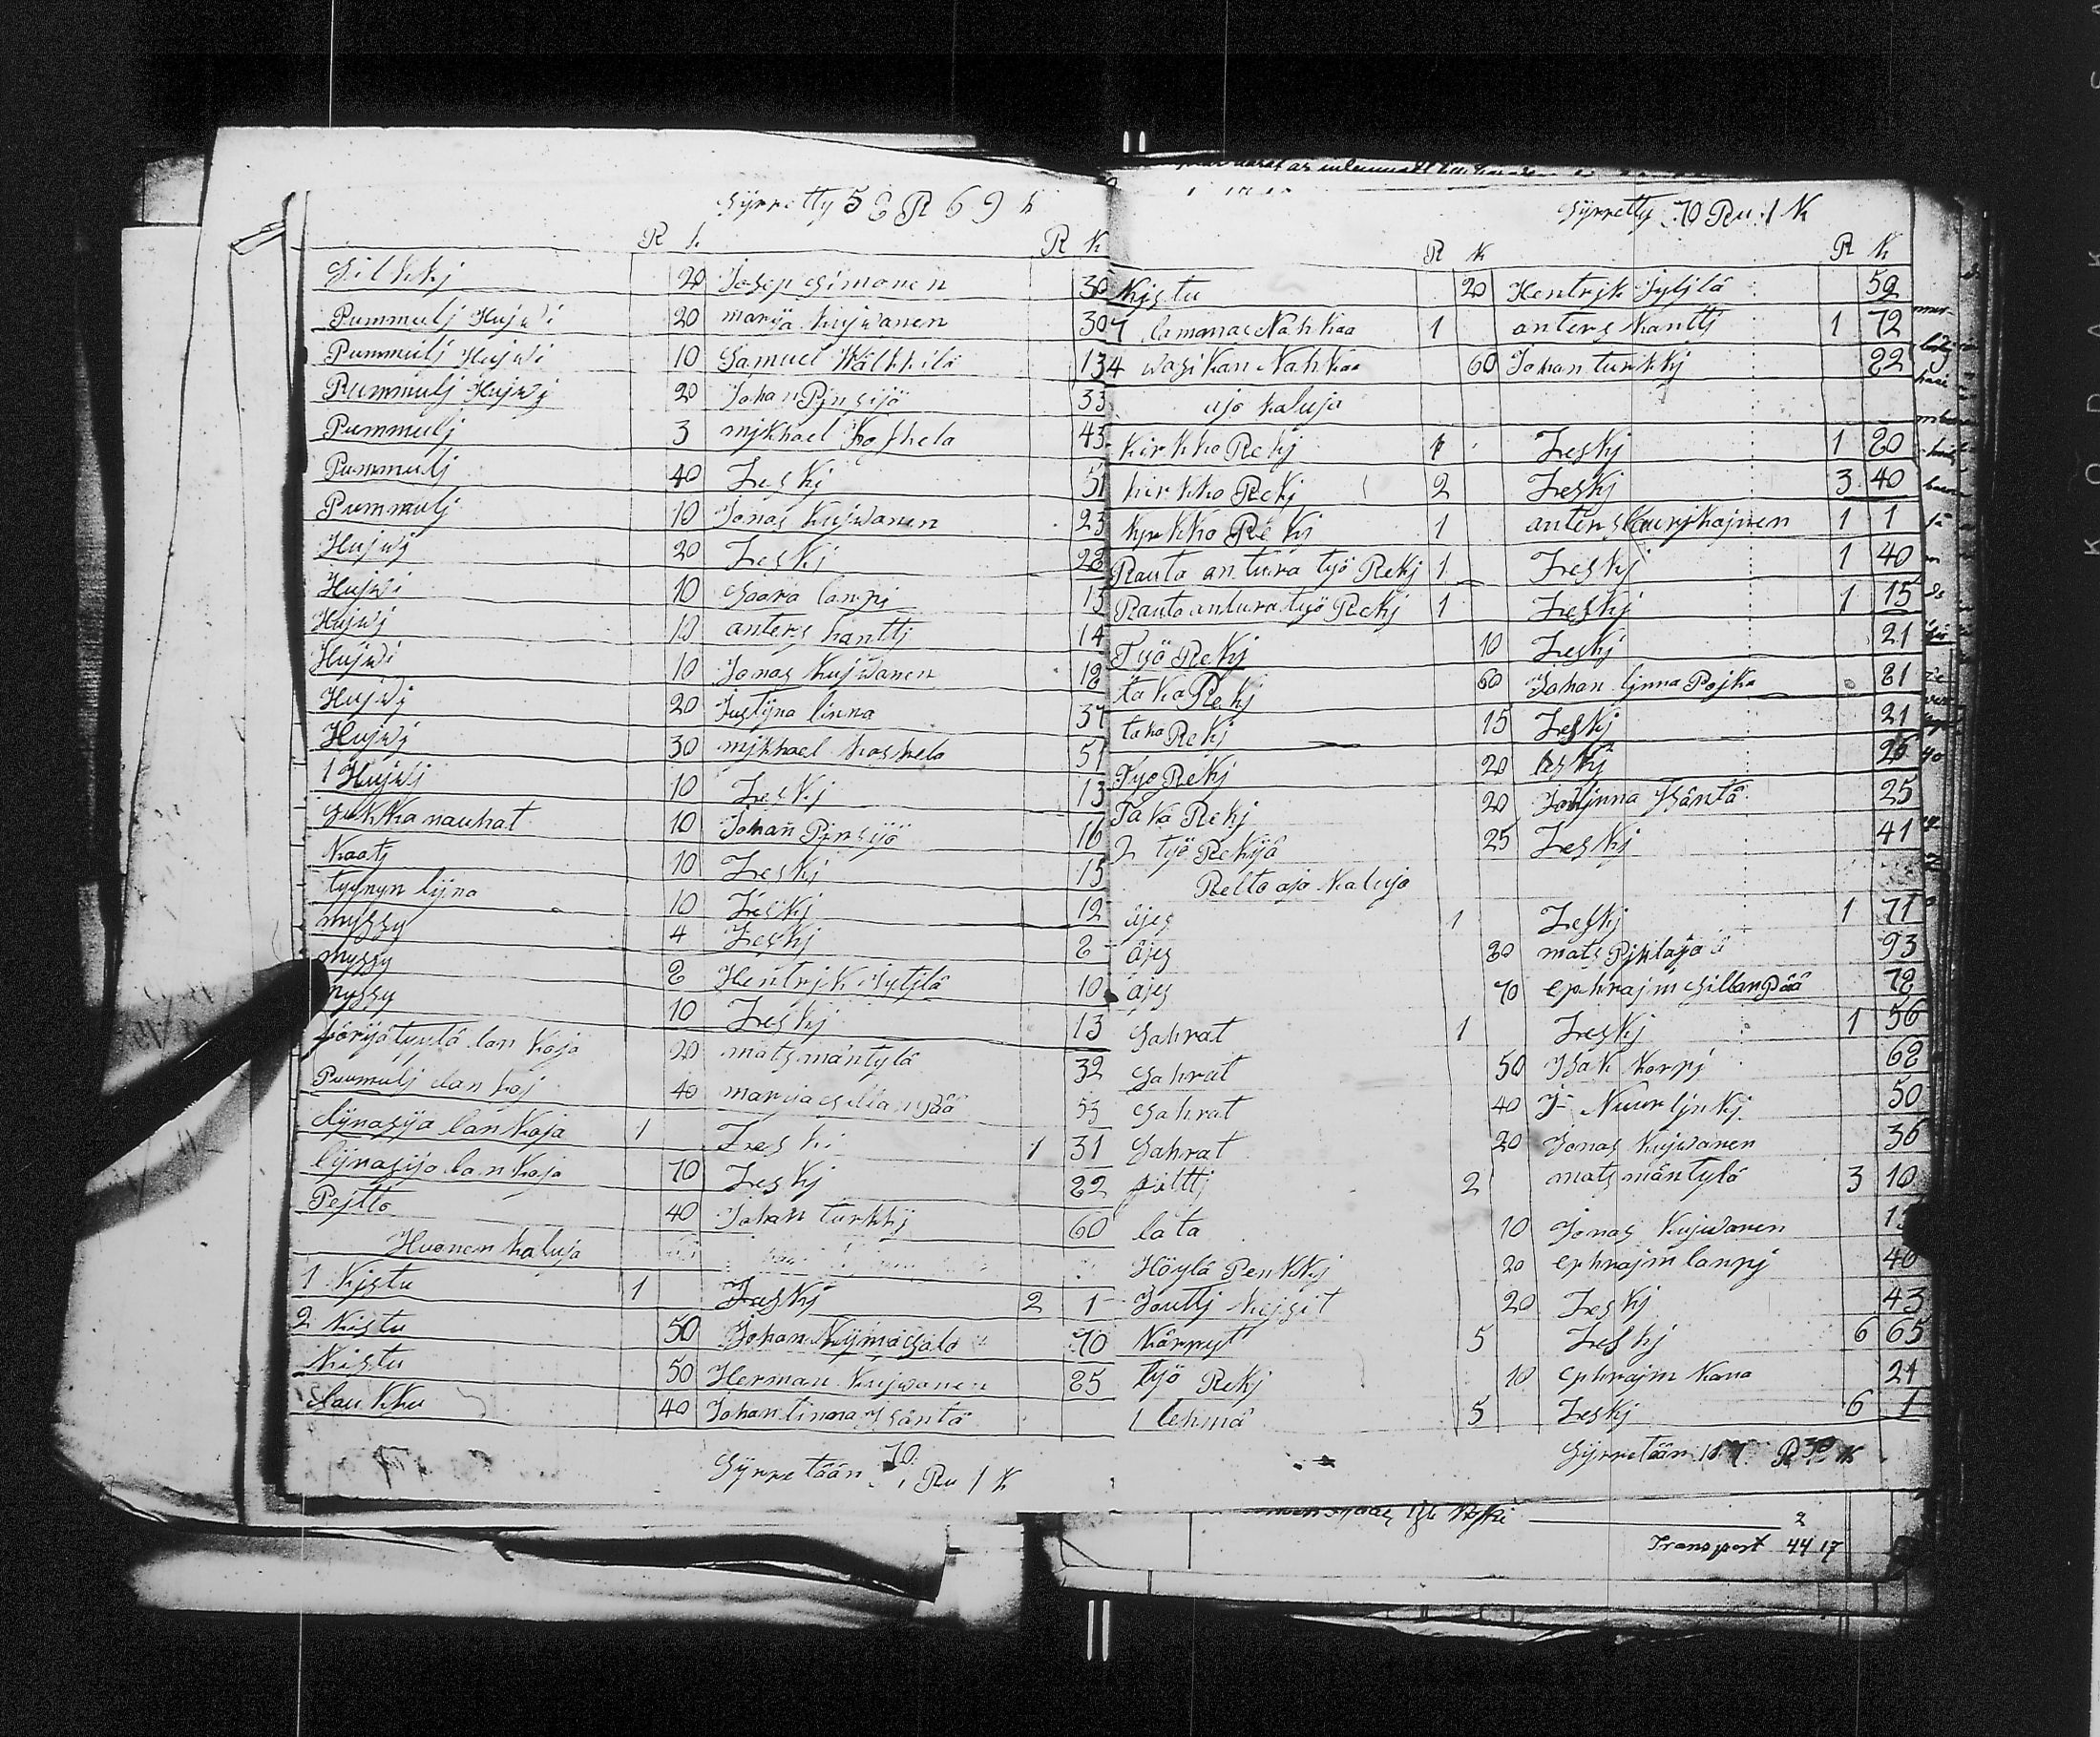 Syrretty 58 R 69 k
R k R K
Silkkj 20 Josep Simonen 30
Pummulj Hujwi 20 marija Kujwanen 30
Pummulj Hujwi 10 Samuel Wälkkilä 13
Pummulj Hujwj 20 Johan Pjnsijö 33
Pummulj 3 mjkhael Koskela 43
Pummulj 40 Leskj 51
Pummulj 10 Jonas Kujwanen 23
Hujwj 20 Leskj 28
Hujwi 10 Saara lanpj 15
Hujwj 10 anters kanttj 14
Hujwi 10 Jonas Kujwanen 18
Hujwj 20 Justijna linna 37
Hujwj 30 mjkhael Koskela 51
1 Hujwj 10 Leskj 13
Sukka nauhat 10 Johan Pjnsijö 16
Kaatj 10 Leskj 15
tyynyn lijna 10 Leskj 12
myssy 4 Leskj 8
myssy 8 Hentrjk Jylylä 10
myssy 10 Leskj 13
lankoja 20 mats mäntylä 32
Puumulj lankoj 40 marija sillanpää 53
lijnasija lankoja 1 Leski 1 31
lijnasijo lankoja 70 Leskj 82
Pejtto 40 Johan turkkj 60
Huonen kaluja
1 Kistu 1 Leskj 2 1
2 Kistu 50 Johan Nijmäsalo 70
Kistu 50 Herman Kujwanen 85
laukku 40 Johan linna Jsäntä
Syrretään 70 Ru 1 K
Syrretty 70 Ru 1 K
R K R K
Kjstu 20 Hentrjk Jyljlä 59
7 lamanas Nahkaa 1 anters Kanttj 1 72
4 wasikan Nahkaa 60 Johan turkkj 82
ajo kaluja
kirkko Rekj 1 Leskj 1 20
kirkko Rekj 2 Leskj 3 40
kyrkko Rekj 1 anters laurjkajnen 1 1
Rauta antura työ Rekj 1 Leskj 1 40
Rauta antura työ Rekj 1 Leskj 1 15
Työ Rekj 10 Leskj 21
taka Rekj 60 Johan ljnna Pojka 81
taka Rekj 15 Leskj 21
Työ Rekj 20 leskj 26
Taka Rekj 20 Joh ljnna Jsäntä 25
2 työ Rekijä 25 Leskj 41
Pelto ajo Kaluja
äjes 1 Leskj 1 71
äjes 80 mats Pjhlaja 93
äjes 70 ephrajm sillanpää 78
Sahrat 1 Leskj 1 56
Sahrat 50 Jsak Korpj 68
Sahrat 40 J Nuurljnkj 50
Sahrat 20 Jonas Kujwanen 36
2 mats mäntylä 3 10
lata 10 Jonas Kujwanen
Höylä Penkkj 20 ephrajm lanpj 40
Jouttj Kejsit 20 Leskj 43
Kärryt 5 Leskj 6 65
työ Rekj 10 ephrajm Kana 21
1 lehmä 5 Leskj 6 1
Syrretään
Transport 44 17
KODAK